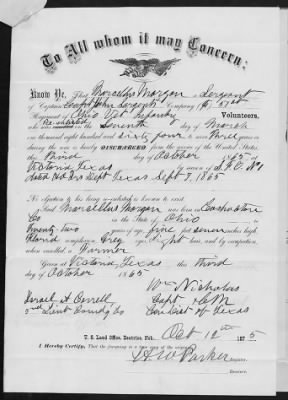 To All whom it may Concern;
Know Ye, That Marcellus Morgan a Sergeant
of Captain John Sergents Company (B) 51st
Regiment of Ohio Vet Infantry Volunteers,
who was on the Seventh day of March
one thousand eight hundred and sixty four to serve Three years or
during the war is hereby DISCHARGED from the service of the United States
this Third day of October 1865 at
Victoria Texas by reason of
Dept Texas Sept 7, 1865
No objection to his being re-enlisted is known to exist.
Said Marcellus Morgan was born in Coshocton
Co in the State of Ohio
Twenty two years of age, five feet seven inches high,
Florid complexion, Grey eyes, light hair, and by occupation,
when enlisted, a Farmer
Given at Victoria Texas this Third
day of October 1865
Wm Nicholas
Israel A Correll Capt & CM
2nd Lieut Comdg Co Cen Dist of Texas
U. S. Land Office, Beatrice, Neb., Oct 12th 1875
I Hereby Certify, That the foregoing is a true copy of the original
H W Parker
Register.
Receiver.